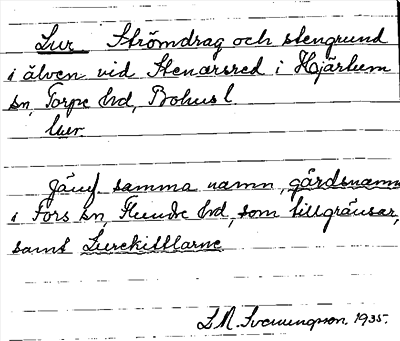 Lur Strömdrag och stengrund
i älven vid Stenarsred i Hjärtum
sn, Torpe hd, Bohusl.
lur
Jämf. samma namn, gårdsnamn
i Fors sn Flundre hd, som tillgränsar,
samt Lurekittlarne
L M. Svenungsson. 1935.